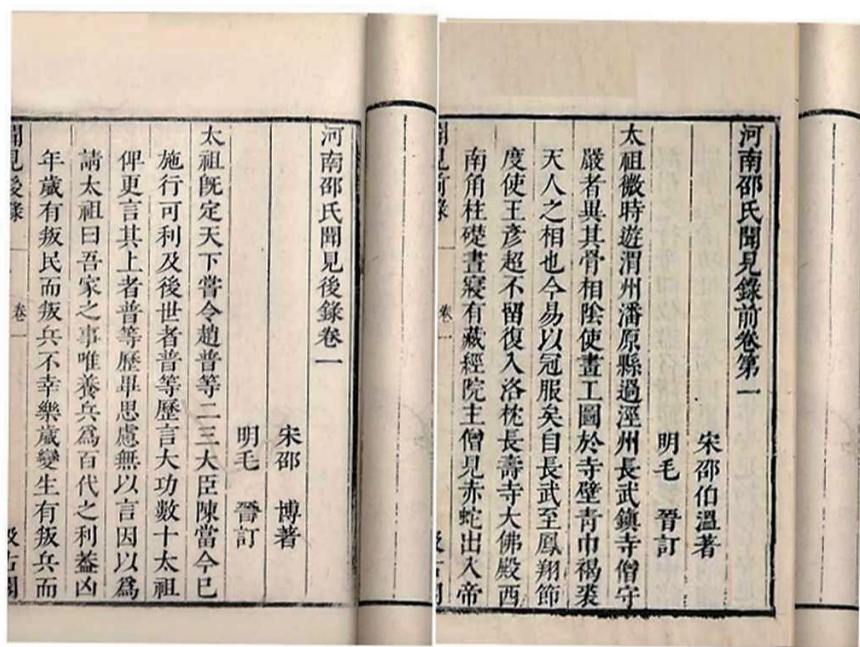 河南邵氏聞見錄前卷第一
宋邵伯溫著
明毛 晉訂
太祖微時遊渭州潘原縣過涇州長武鎮寺僧守
嚴者異其骨相陰使畫工圖於寺壁青巾褐裘
天人之相也今易以冠服矣自長武至鳳翔節
度使王彥超不留復入洛枕長壽寺大佛殿西
南角柱礎晝寢有藏經院主僧見赤蛇出入帝
聞見前錄 卷一 汲古閣
河南邵氏聞見後錄卷一
宋邵 博著
明毛 晉訂
太祖旣定天下嘗令趙普等二三大臣陳當今已
施行可利及後世者普等歷言大功數十太祖
俾更言其上者普等歷畢思慮無以言因以爲
請太祖曰吾家之事唯養兵爲百代之利葢凶
年歲有叛民而叛兵不幸樂歲變生有叛兵而
聞見後錄 卷一 汲古閣